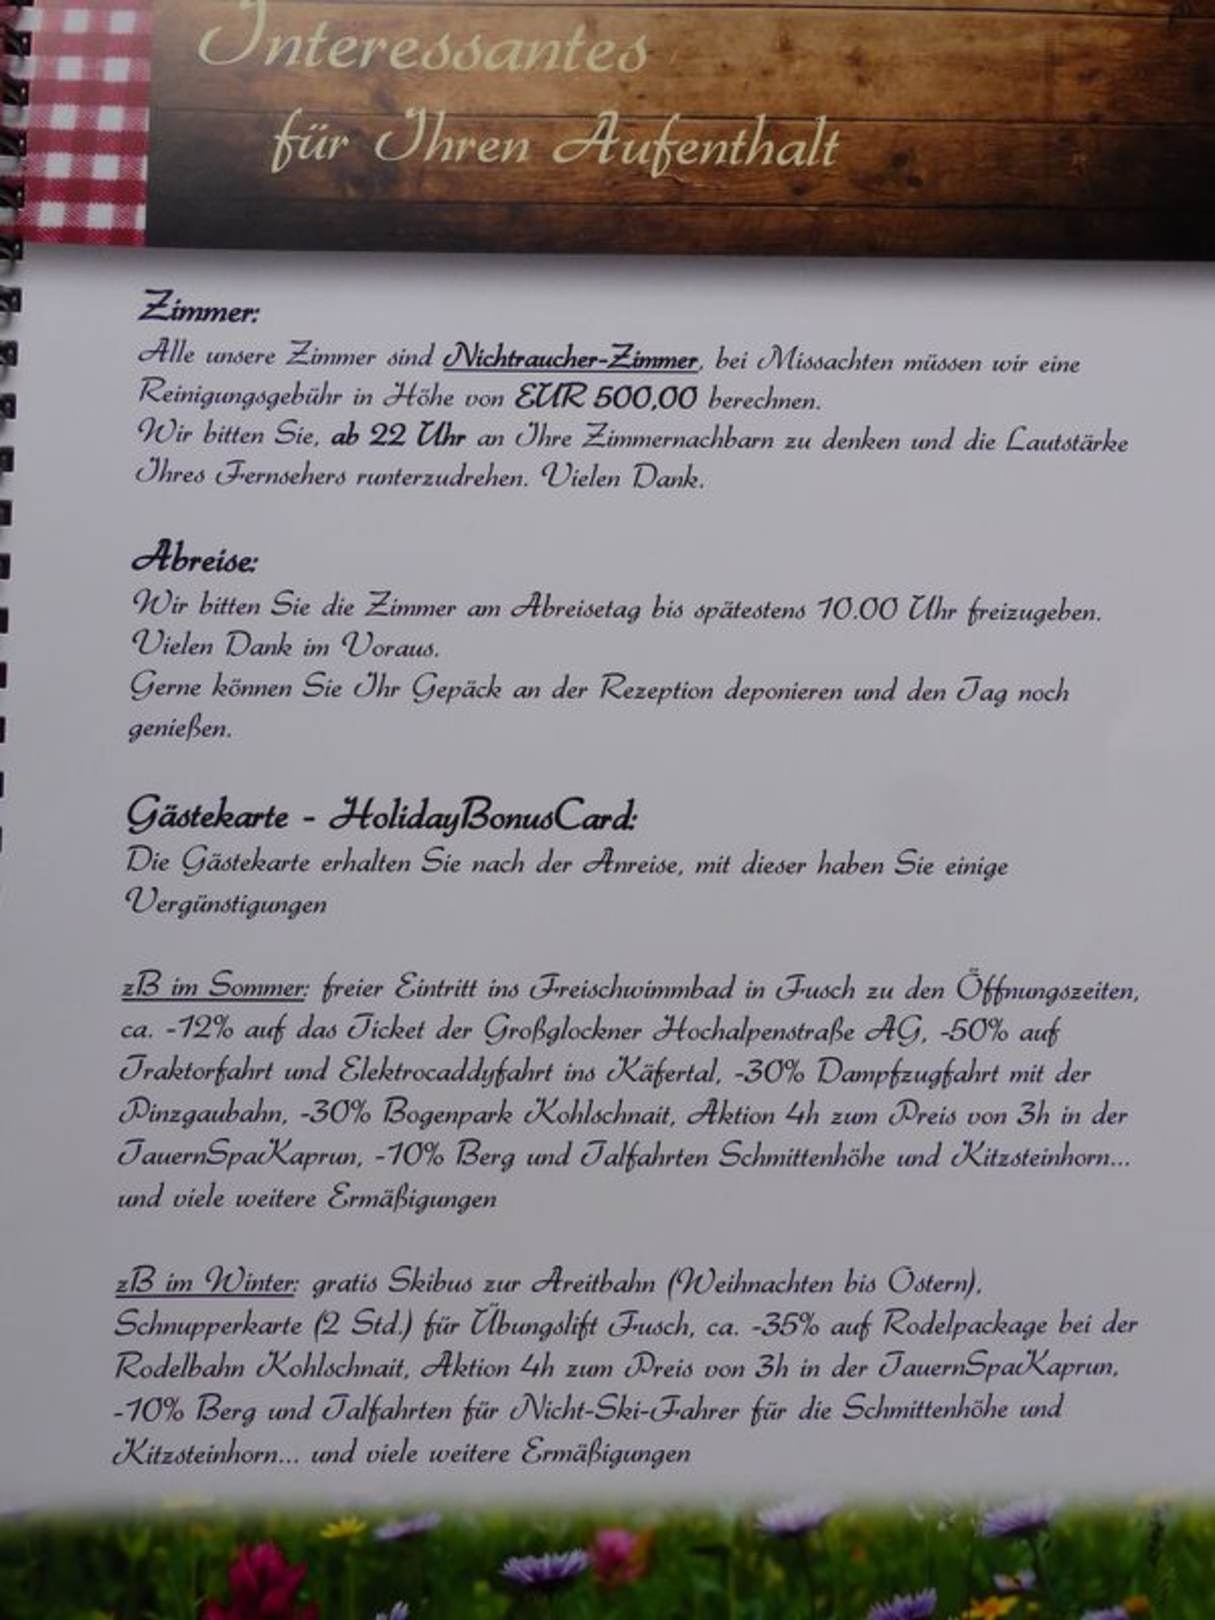 Interessantes
für Ihren Aufenthalt
Zimmer:
Alle unsere Zimmer sind Nichtraucher-Zimmer, bei Missachten müssen wir eine
Reinigungsgebühr in Höhe von EUR 500,00 berechnen.
Wir bitten Sie, ab 22 Uhr an Ihre Zimmernachbarn zu denken und die Lautstärke
Ihres Fernsehers runterzudrehen. Vielen Dank.
Abreise:
Wir bitten Sie die Zimmer am Abreisetag bis spätestens 10.00 Uhr freizugeben.
Vielen Dank im Voraus.
Gerne können Sie Ihr Gepäck an der Rezeption deponieren und den Tag noch
genießen.
Gästekarte - HolidayBonusCard:
Die Gästekarte erhalten Sie nach der Anreise, mit dieser haben Sie einige
Vergünstigungen
zB im Sommer: freier Eintritt ins Freischwimmbad in Fusch zu den Öffnungszeiten,
ca. -12% auf das Ticket der Großglockner Hochalpenstraße AG, -50% auf
Traktorfahrt und Elektrocaddyfahrt ins Käfertal, -30% Dampfzugfahrt mit der
Pinzgaubahn, -30% Bogenpark Kohlschnait, Aktion 4h zum Preis von 3h in der
TauernSpaKaprun, -10% Berg und Talfahrten Schmittenhöhe und Kitzsteinhorn...
und viele weitere Ermäßigungen
zB im Winter: gratis Skibus zur Areitbahn (Weihnachten bis Ostern),
Schnupperkarte (2 Std.) für Übungslift Fusch, ca. -35% auf Rodelpackage bei der
Rodelbahn Kohlschnait, Aktion 4h zum Preis von 3h in der TauernSpaKaprun,
-10% Berg und Talfahrten für Nicht-Ski-Fahrer für die Schmittenhöhe und
Kitzsteinhorn... und viele weitere Ermäßigungen